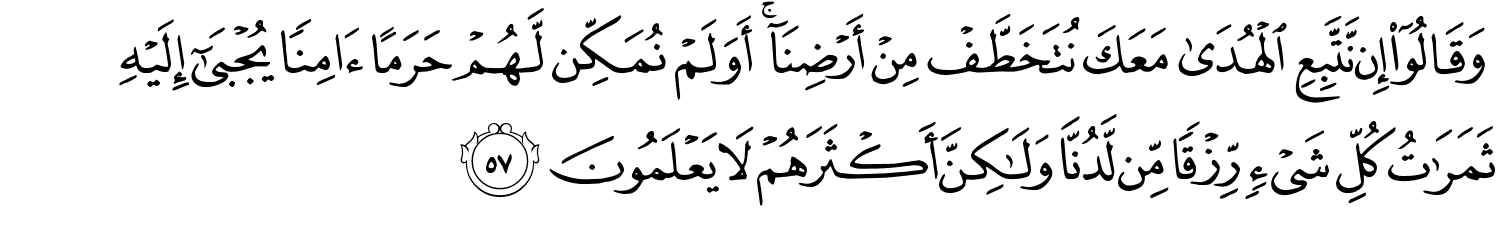 وَقَالُوٓا۟ إِن نَّتَّبِعِ ٱلْهُدَىٰ مَعَكَ نُتَخَطَّفْ مِنْ أَرْضِنَآ ۚ أَوَلَمْ نُمَكِّن لَّهُمْ حَرَمًا ءَامِنًا يُجْبَىٰٓ إِلَيْهِ
ثَمَرَٰتُ كُلِّ شَىْءٍ رِّزْقًا مِّن لَّدُنَّا وَلَـٰكِنَّ أَكْثَرَهُمْ لَا يَعْلَمُونَ ٥٧